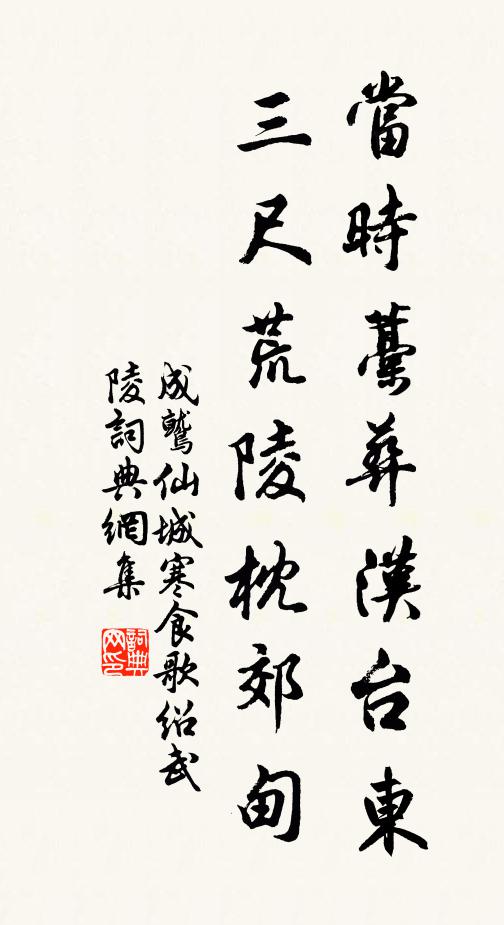 當時藁葬漢台東
三尺荒陵枕郊甸
成鷲仙城寒食歌紹武
陵詞典網集
詞典网印